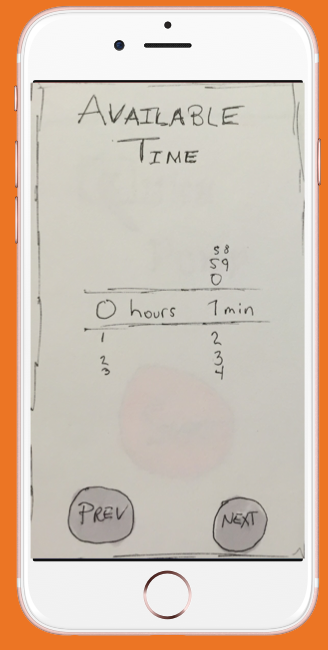 AVAILABLE
TIME
58
59
0
0 hours 1 min
1 2
2 3
3 4
PREV NEXT